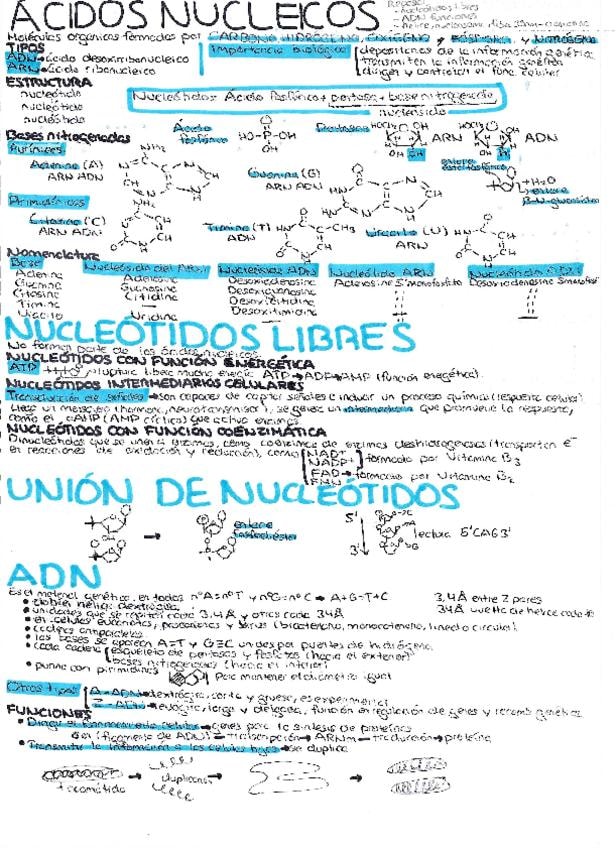 ÁCIDOS NUCLEICOS
Repaso:
- Nucleótidos libres
- ADN funciones
Moléculas orgánicas formadas por CARBONO, HIDRÓGENO, OXÍGENO y FÓSFORO, y NITRÓGENO
TIPOS
ADN → ácido desoxirribonucleico
ARN → ácido ribonucleico
Importancia biológica
depositarios de la información genética
transmiten la información genética
dirigen y controlan el func. celular
ESTRUCTURA
nucleótido
nucleótido
nucleótido
Nucleótidos: Ácido fosfórico + pentosa + base nitrogenada
nucleósido
Bases nitrogenadas
Ácido fosfórico
Pentosas
ARN
ADN
Púricas
Adenina (A)
ARN ADN
Guanina (G)
ARN ADN
Pirimidínicas
Citosina (C)
ARN ADN
Timina (T)
ADN
Uracilo (U)
ARN
Nomenclatura
Base
Adenina
Guanina
Citosina
Timina
Uracilo
Nucleósido del ARN
Adenosina
Guanosina
Citidina
Uridina
Nucleósido ADN
Desoxiadenosina
Desoxiguanosina
Desoxicitidina
Desoxitimidina
Nucleótido ARN
Adenosina 5' monofosfato
Nucleótido ADN
Desoxiadenosina 5' monofosfato
NUCLEÓTIDOS LIBRES
No forman parte de los ácidos nucleicos
NUCLEÓTIDOS CON FUNCIÓN ENERGÉTICA
ATP + H₂O → ruptura libera mucha energía ATP → ADP → AMP (función energética)
NUCLEÓTIDOS INTERMEDIARIOS CELULARES
Transducción de señales → son capaces de captar señales e inducir un proceso químico (respuesta celular)
Llega un mensajero (hormona, neurotransmisor), se genera un intermediario que promueve la respuesta,
como el cAMP (AMP cíclico) que activa enzimas
NUCLEÓTIDOS CON FUNCIÓN COENZIMÁTICA
Dinucleótidos que se unen a enzimas, como coenzimas de enzimas deshidrogenasas (transportan e⁻
en reacciones de oxidación y reducción), como
NAD⁺
NADP⁺
formado por Vitamina B₃
FAD
FMN
formado por Vitamina B₂
UNIÓN DE NUCLEÓTIDOS
enlace fosfodiéster
5'
3'
lectura 5'CAG3'
ADN
Es el material genético, en todos nºA=nºT y nºG=nºC → A+G=T+C
3,4Å entre 2 pares
• doble hélice dextrógira
• unidades que se repiten cada 3,4Å y otras cada 34Å
• en células eucariotas, procariotas y virus (bicatenario, monocatenario, lineal o circular)
• cadenas antiparalelas
• las bases se aparean A=T y G≡C unidas por puentes de hidrógeno
• cada cadena
esqueleto de pentosas y fosfatos (hacia el exterior)
bases nitrogenadas (hacia el interior)
• purina con pirimidina
Para mantener el diámetro igual
Otros tipos
A-ADN → dextrógira, corta y gruesa, es experimental
Z-ADN → levógira, larga y delgada, función en regulación de genes y recomb. genética
FUNCIONES
• Dirige el funcionamiento celular → genes para la síntesis de proteínas
Gen (fragmento de ADN) → transcripción → ARNm → traducción → proteína
• Transmite la información a las células hijas → se duplica
duplicación